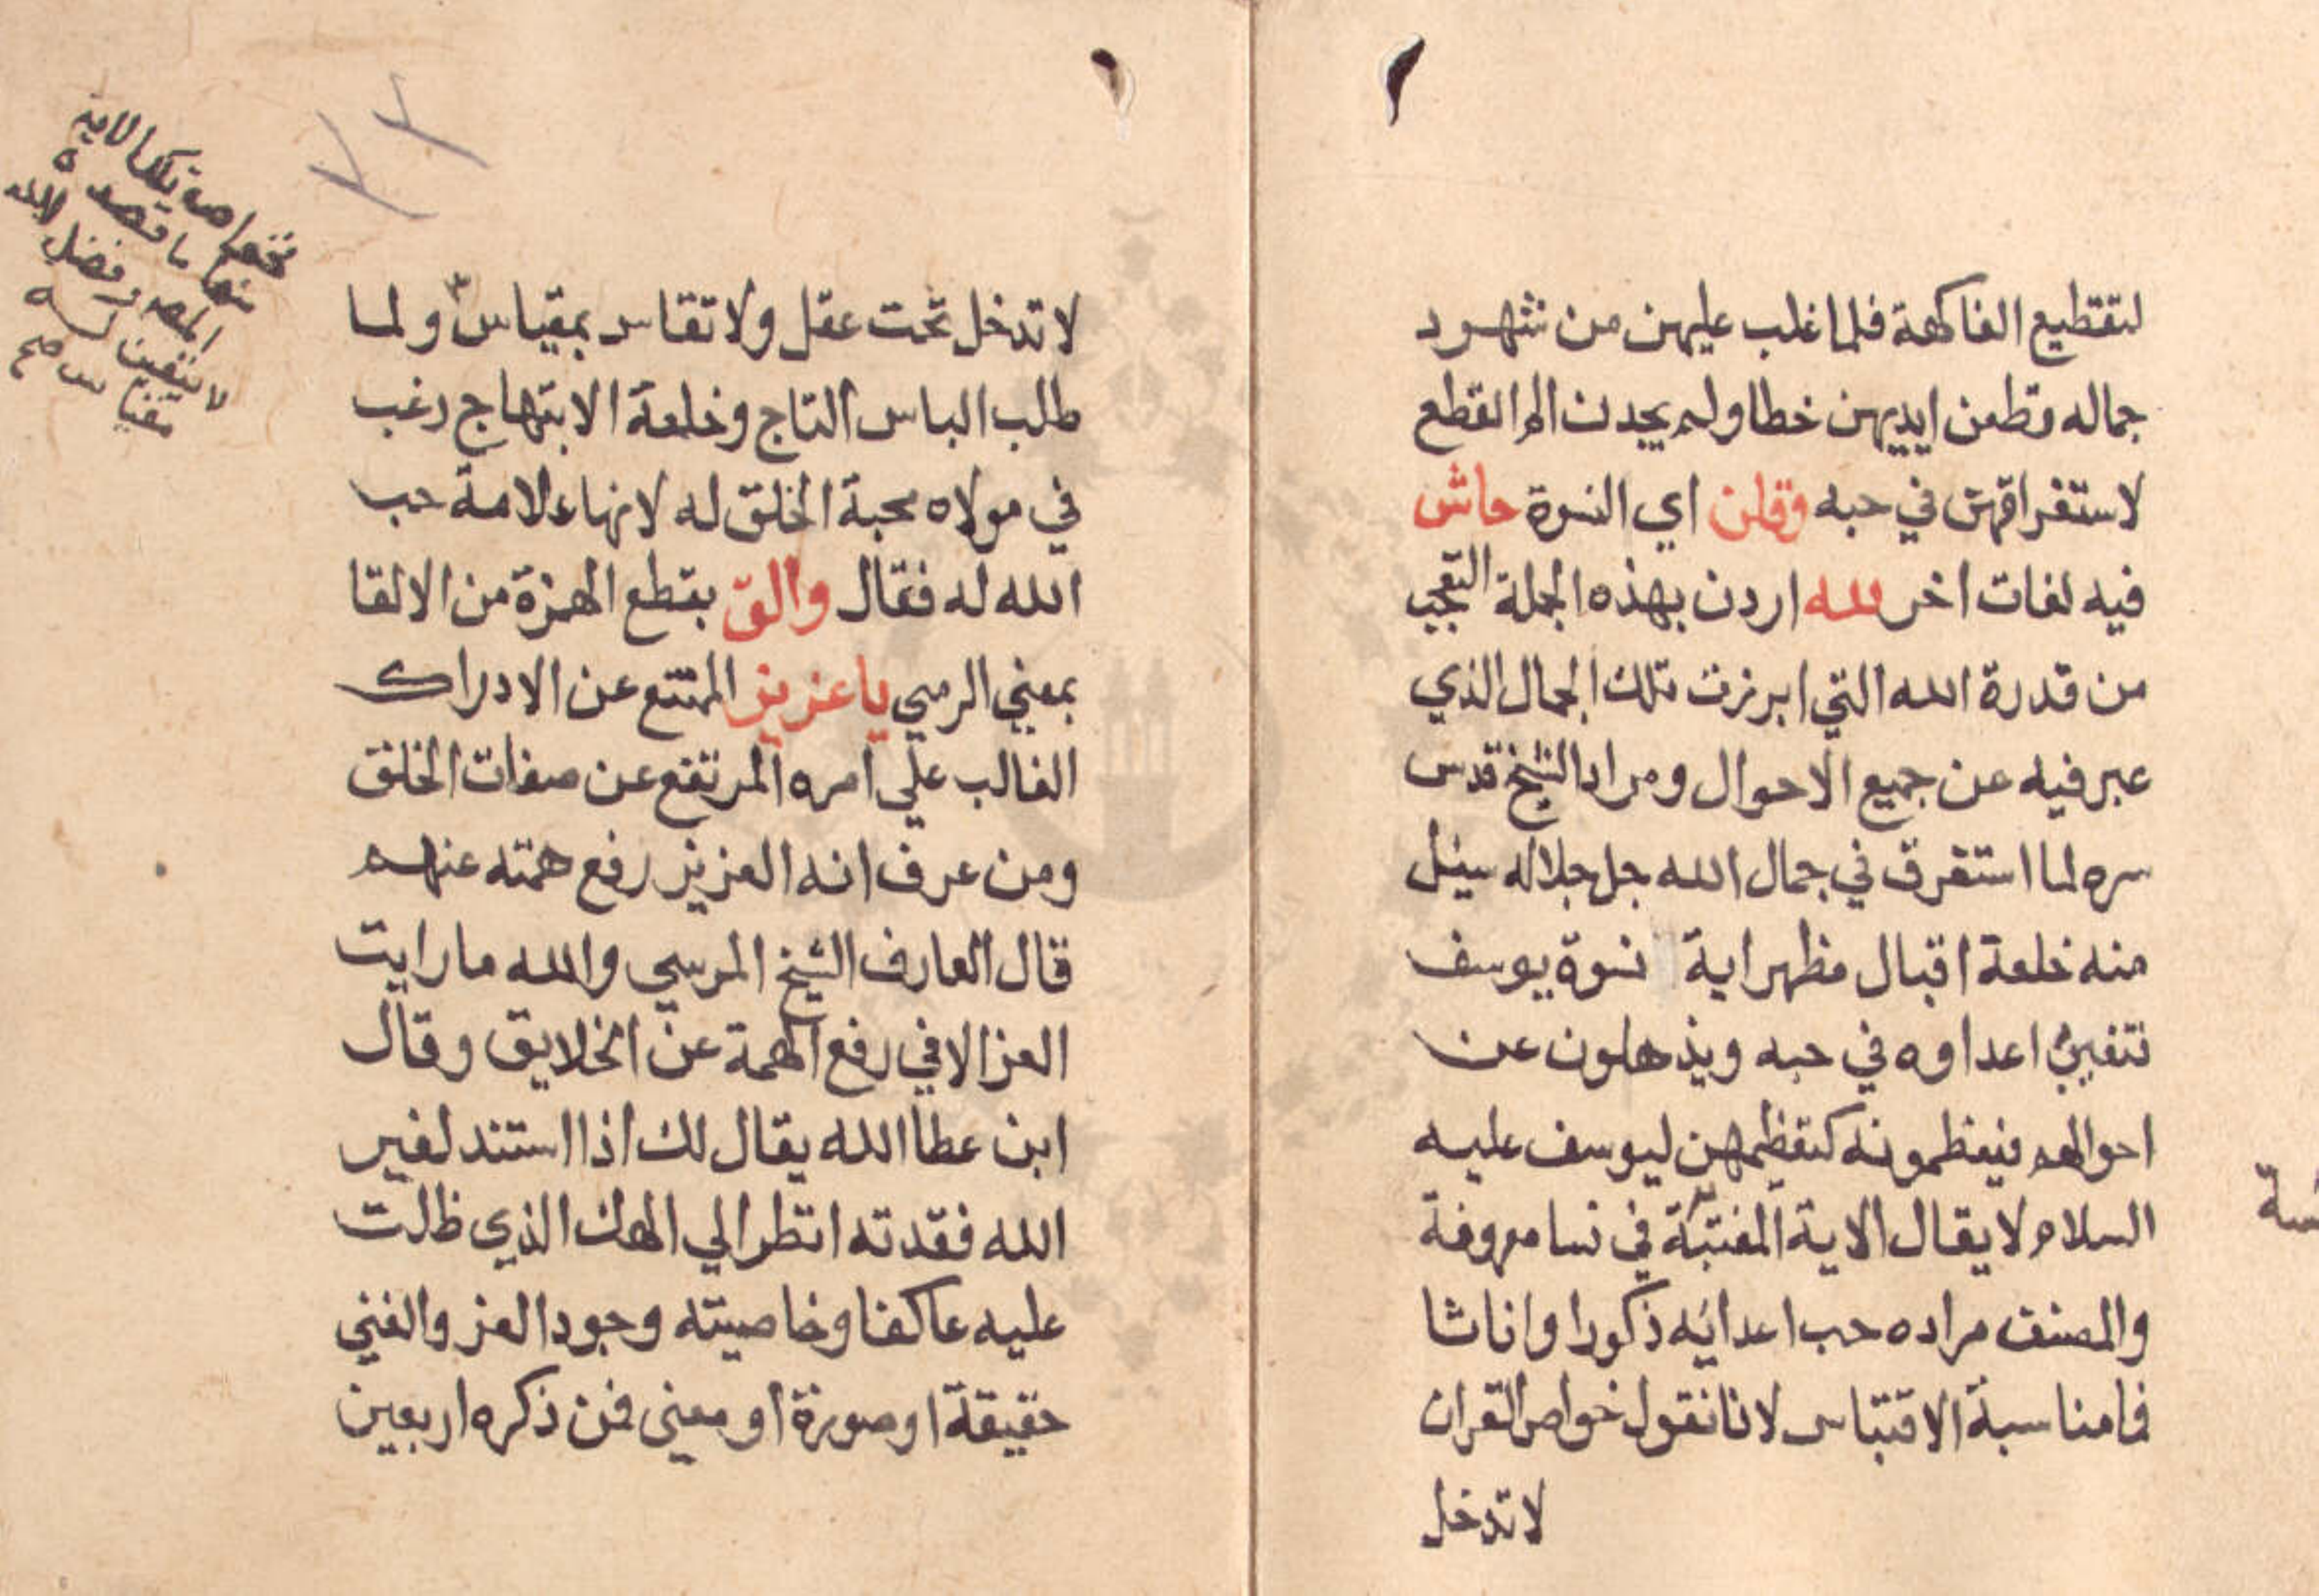 لتقطيع الفاكهة فلما غلب عليهن من شهود
جماله قطعن ايديهن خطا ولم يجدن الم القطع
لاستغراقهن في حبه وقلن اي النسوة حاش
فيه لغات اخر لله اردن بهذه الجملة التعجب
من قدرة الله التي ابرزت تلك الجمال الذي
عبر فيه عن جميع الاحوال ومراد الشيخ قدس
سره لما استغرق في جمال الله جل جلاله سيل
منه خلعة اقبال مظهر اية نسوة يوسف
اعداوه في حبه ويذهلون عن
احوالهم فيعظمونه كتعظيمهن ليوسف عليه
السلام لا يقال الاية المقتبسة في نسا معروفة
والمصنف مراده حب اعدايه ذكورا واناثا
فما مناسبة الاقتباس لانا نقول خواص القران
لا تدخل
لا تدخل تحت عقل ولا تقاس بمقياس ولما
طلب الباس التاج وخلعة الابتهاج رغب
في مولاه محبة الخلق له لانها علامة حب
الله له فقال والق بقطع الهمزة من الالقا
بمعني الرمي يا عزيز الممتنع عن الادراك
الغالب علي امره المرتفع عن صفات الخلق
ومن عرف انه العزيز رفع همته عنهم
قال العارف الشيخ المرسي والله ما رايت
العز الا في رفع الهمة عن الخلايق وقال
ابن عطا الله يقال لك اذا استند لغير
الله فقدته انظر الي الهك الذي ظلت
عليه عاكفا وخاصيته وجود العز والغني
حقيقة او صورة او معني فمن ذكره اربعين
تلك الاية
منها ما قصده
المص وفضل الله
لا يتقيد
مقياس صح